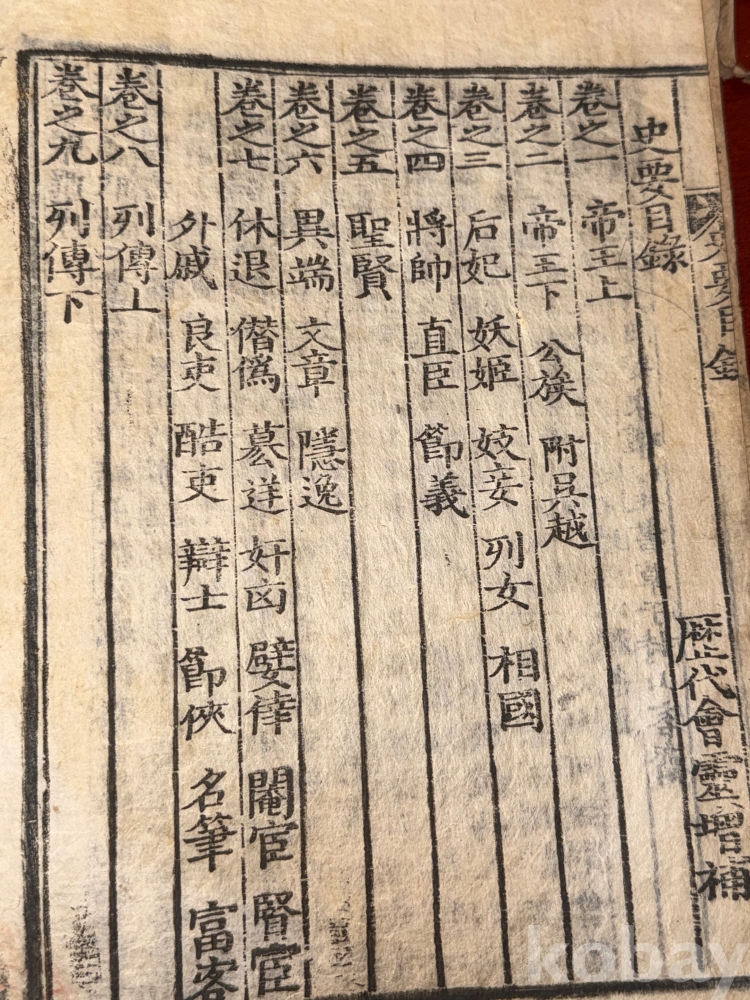 史要目錄 歷代會靈增補
卷之一 帝王上
卷之二 帝王下 公族 附吳越
卷之三 后妃 妖姬 妓妾 列女 相國
卷之四 將帥 直臣 節義
卷之五 聖賢
卷之六 異端 文章 隱逸
卷之七 休退 僭僞 簒逆 奸凶 嬖倖 閹宦 賢宦
外戚 良吏 酷吏 辯士 節俠 名筆 富客
卷之八 列傳上
卷之九 列傳下
kobay